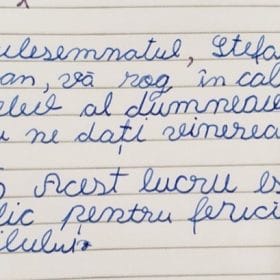 ulesemnatul, Ștefa
an, vă rog în cal
elev al dumneav
u ne dați vinerea
Acest lucru es
lic pentru ferici
ilului.